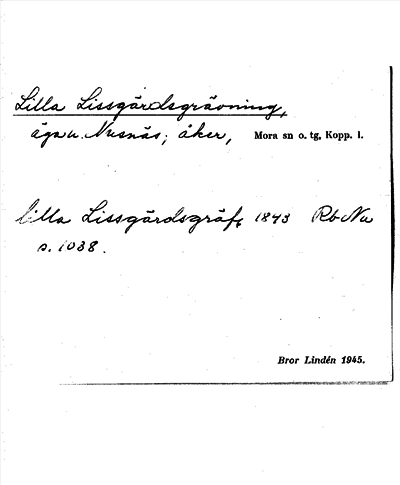 Lilla Lissgärdsgrävning,
äga u. Nusnäs; åker, Mora sn o. tg, Kopp. l.
lilla Lissgärdsgräfg 1843 Rb Nu
s. 1038.
Bror Lindén 1945.